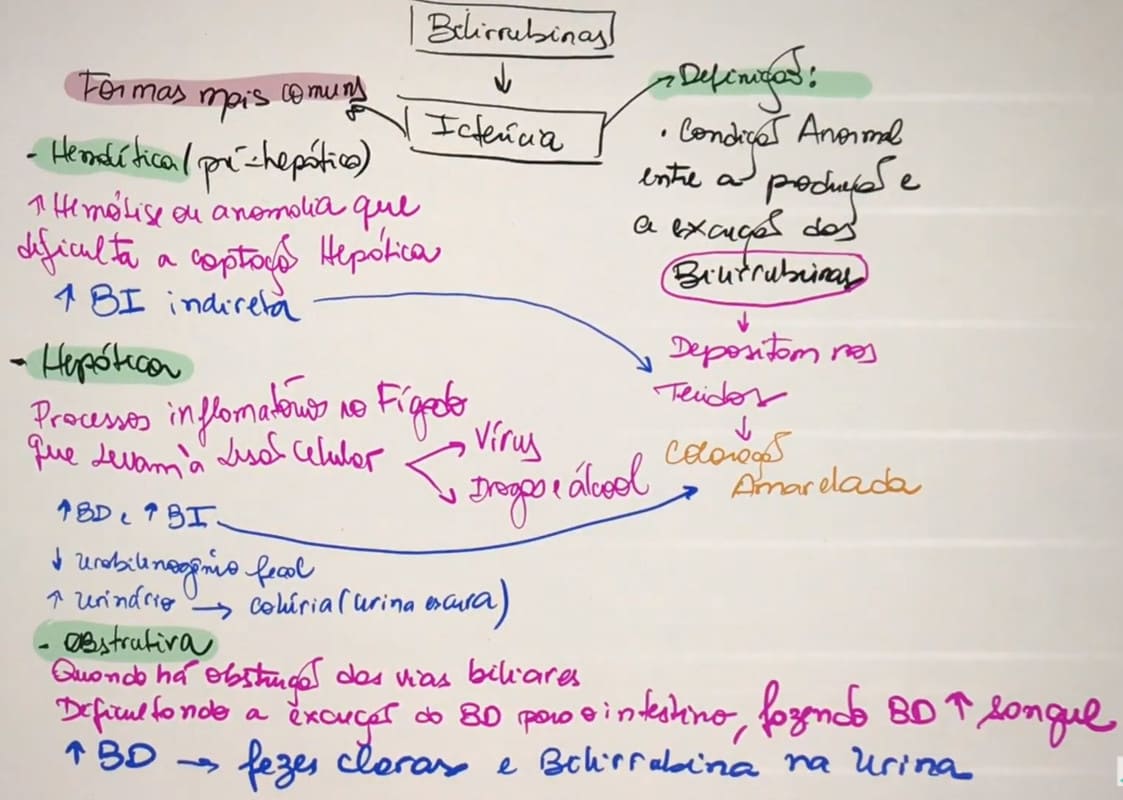 Bilirrubinas
Icterícia
Formas mais comuns
- Hemolítica (pré-hepática)
↑ Hemólise ou anomalia que
dificulta a captação Hepática
↑ BI indireta
- Hepática
Processos inflamatórios no Fígado
que levam à lesão celular
Vírus
Drogas e álcool
↑ BD e ↑ BI
↓ urobilinogênio fecal
↑ urinário → colúria (urina escura)
- Obstrutiva
Quando há obstrução das vias biliares
Dificultando a excreção do BD para o intestino, fazendo BD ↑ sangue
↑ BD → fezes claras e Bilirrubina na urina
Definição:
· Condição Anormal
entre a produção e
a excreção das
Bilirrubinas
Depositam nos
Tecidos
Coloração
Amarelada